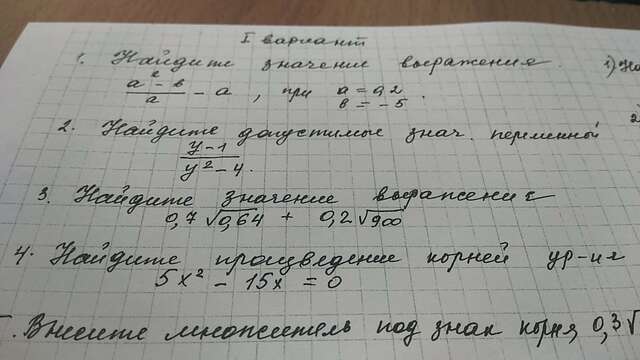 I вариант
1. Найдите значение выражения.
a² - в / a - a, при a = 0,2
в = -5.
2. Найдите допустимые знач. переменной
y-1 / y² - 4.
3. Найдите значение выражения
0,7 √0,64 + 0,2 √900
4. Найдите произведение корней ур-ия
5x² - 15x = 0
Внесите множитель под знак корня 0,3√
1)